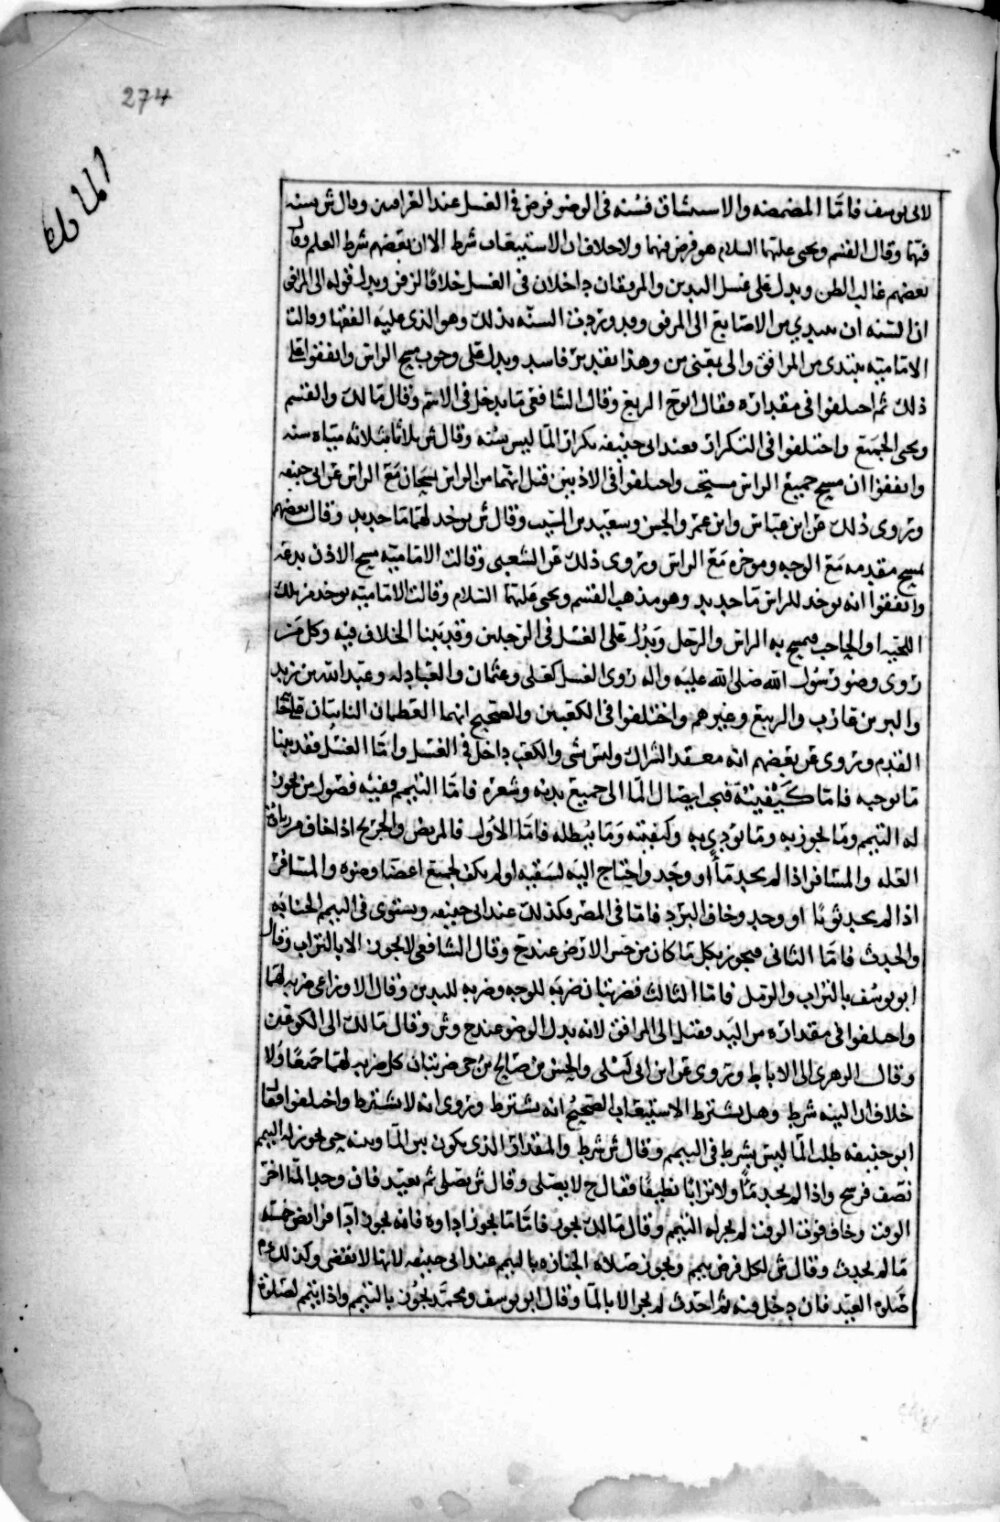 274
المائدة
لابي يوسف فاما المضمضه والاستنشاق فسنه في الوضو فرض في الغسل عند العراقيين وقال ش سنه
فيهما وقال القسم ويحيى عليهما السلام هو فرض فيهما ولا خلاف ان الاستيعاب شرط الا ان بعضهم شرط العلم وقال
بعضهم غالب الظن ويدل على غسل اليدين والمرفقان داخلان في الغسل خلافا لزفر ويدل قوله الى المرافق
ان السنه ان يبتدي من الاصابع الى المرفق وقد وردت السنه بذلك وهو الذي عليه الفقها وقالت
الاماميه يبتدي من المرافق والى بمعنى من وهذا تقدير فاسد ويدل على وجوب مسح الراس واتفقوا على
ذلك ثم اختلفوا في مقداره فقال ابوح الربع وقال الشافعي ما يدخل في الاسم وقال مالك والقسم
ويحيى الجميع واختلفوا في التكرار فعند ابي حنيفه تكرار الما ليس بسنه وقال ش ثلاثا بثلاثه مياه سنه
واتفقوا ان مسح جميع الراس مستحب واختلفوا في الاذنين فقيل انهما من الراس يمسحان مع الراس عن ابي حنيفه
وروى ذلك عن ابن عباس وابن عمر والحسن وسعيد بن المسيب وقال ش يوخد لهما ما جديد وقال بعضهم
يمسح مقدمه مع الوجه وموخره مع الراس وتروى ذلك عن الشعبي وقالت الاماميه مسح الاذن بدعه
واتفقوا انه يوخد للراس ما جديد وهو مذهب القسم ويحيى عليهما السلام وقالت الاماميه يوخد من بلك
اللحيه او الحاجب فيمسح به الراس والرجل ويدل على الغسل في الرجلين وقد بينا الخلاف فيه وكل من
روى وضو رسول الله صلى الله عليه واله روى الغسل كعلي وعثمان والعبادله وعبد الله بن زيد
والبر بن عازب والربيع وغيرهم واختلفوا في الكعبين والصحيح انهما العظمان الناتيان على
القدم وتروى عن بعضهم انه معقد الشراك وليس بشى والكعب داخل في الغسل واما الغسل فقد بينا
ما يوجبه فاما كيفيته فيجب ايصال الما الى جميع بدنه وشعره فاما التيمم ففيه فصول من يجوز
له التيمم وما يجوز به وما يودي به وكيفيته وما يبطله فاما الاول فالمريض والجريح اذا خاف من زيادة
العله والمسافر اذا لم يجد ما او وجد واحتاج اليه لسقيه او لم يكف لجميع اعضا وضوه والمسافر
اذا لم يجد ثوبا او وجد وخاف البرد فاما في المصر فكذلك عند ابي حنيفه ويستوي في التيمم الجنابه
والحدث فاما الثاني فيجوز بكل ما كان من جنس الارض عند ح وقال الشافعي لا يجوز الا بالتراب وقال
ابو يوسف بالتراب والرمل فاما الثالث فضربتان ضربه للوجه وضربه لليدين وقال الاوزاعي ضربه لهما
واختلفوا في مقداره من اليد فقيل الى المرافق لانه بدل الوضو عند ح وش وقال مالك الى الكوعين
وقال الزهري الى الاباط وتروى عن ابن ابي ليلى والحسن بن صالح بن حي ضربتان كل ضربه لهما جميعا ولا
خلاف ان النيه شرط وهل يشترط الاستيعاب الصحيح انه يشترط وروى انه لا يشترط واختلفوا فقال
ابو حنيفه طلب الما ليس بشرط في التيمم وقال ش شرط والمقدار الذي يكون بين الما وبينه حتى يجوز له التيمم
نصف فرسخ واذا لم يجد ما ولا ترابا نظيفا فقال ح لا يصلى وقال ش يصلى ثم يعيد فان وجد الما اخر
الوقت وخاف فوت الوقت لم يجز له التيمم وقال مالك يجوز فاما ما يجوز اداوه فانه يجوز اداء فرائض خمسه
ما لم يحدث وقال ش لكل فرض تيمم ويجوز صلاة الجنازه بالتيمم عند ابي حنيفه لانها لا تقضى وكذلك
صلوة العيد فان دخل فيه ثم احدث لم يجز الا بالما وقال ابو يوسف ومحمد يجوز بالتيمم واذا تيمم لصلوة